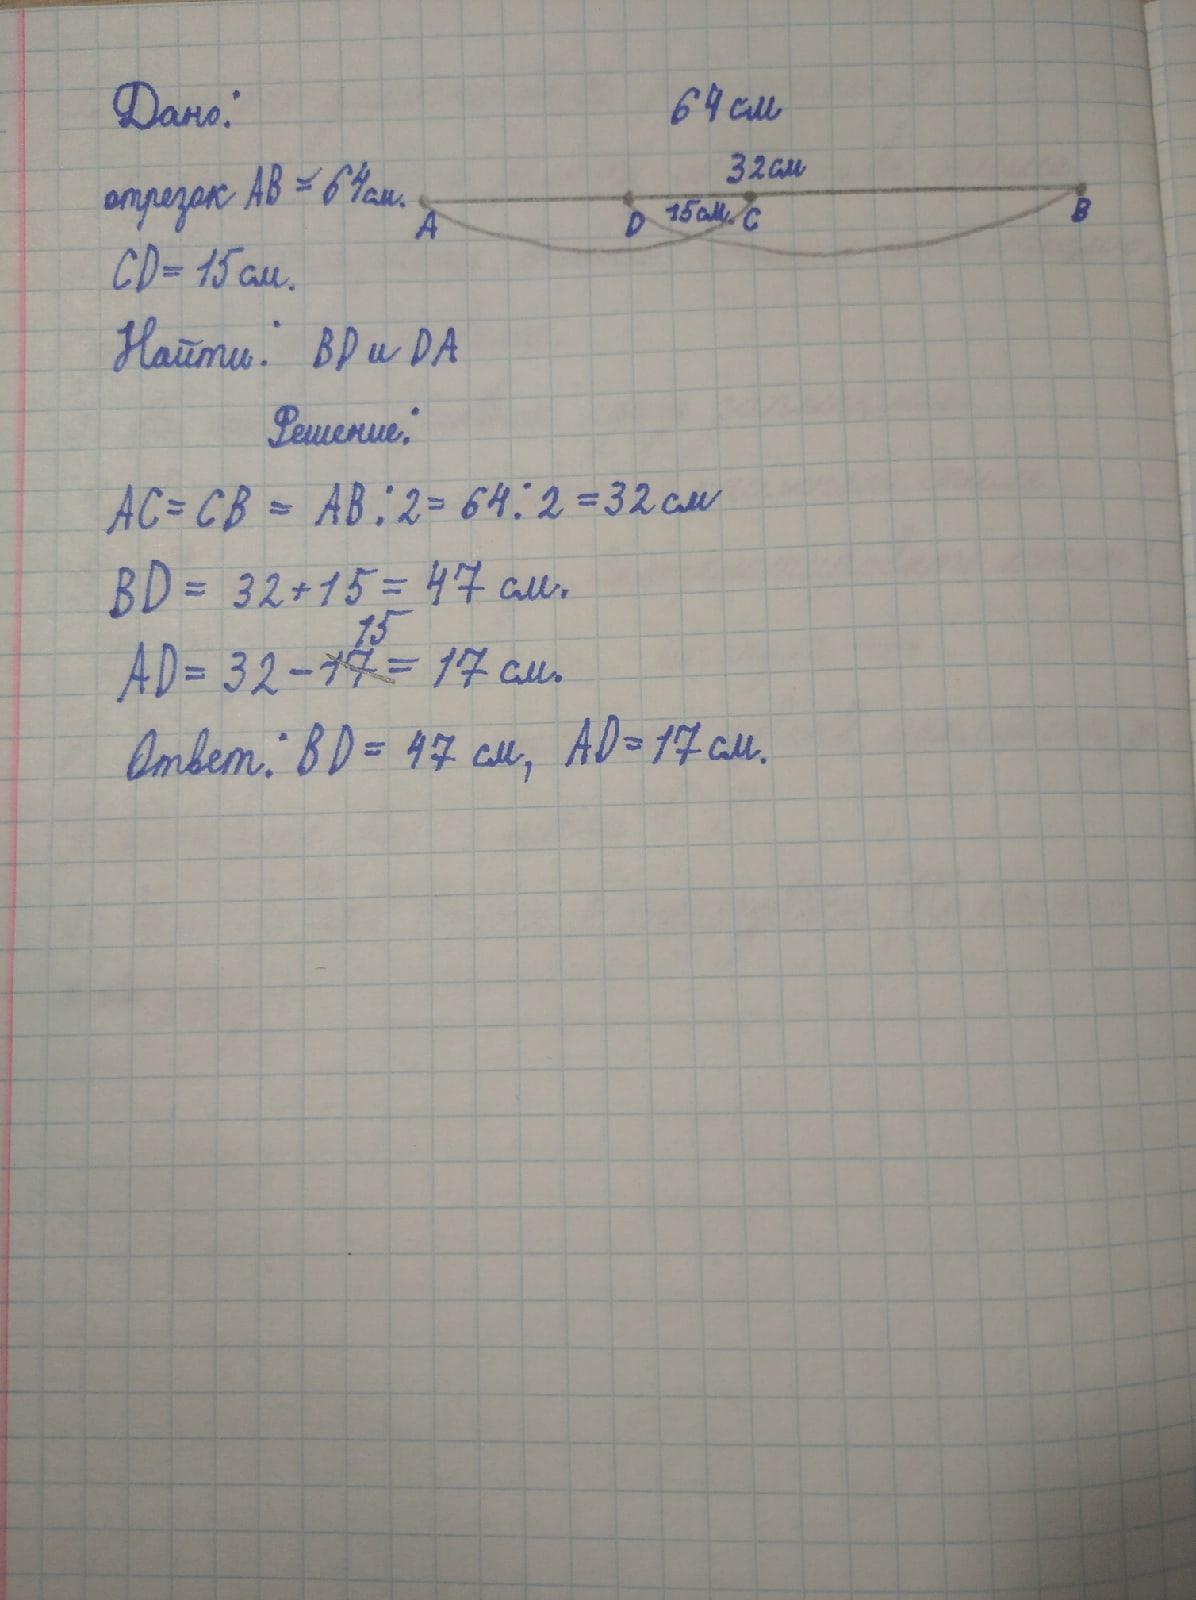 Дано:
64 см
32 см
отрезок AB = 64 см.
A
D
15 см.
C
B
CD = 15 см.
Найти: BD и DA
Решение:
AC = CB = AB : 2 = 64 : 2 = 32 см
BD = 32 + 15 = 47 см.
15
AD = 32 - 17 = 17 см.
Ответ: BD = 47 см, AD = 17 см.